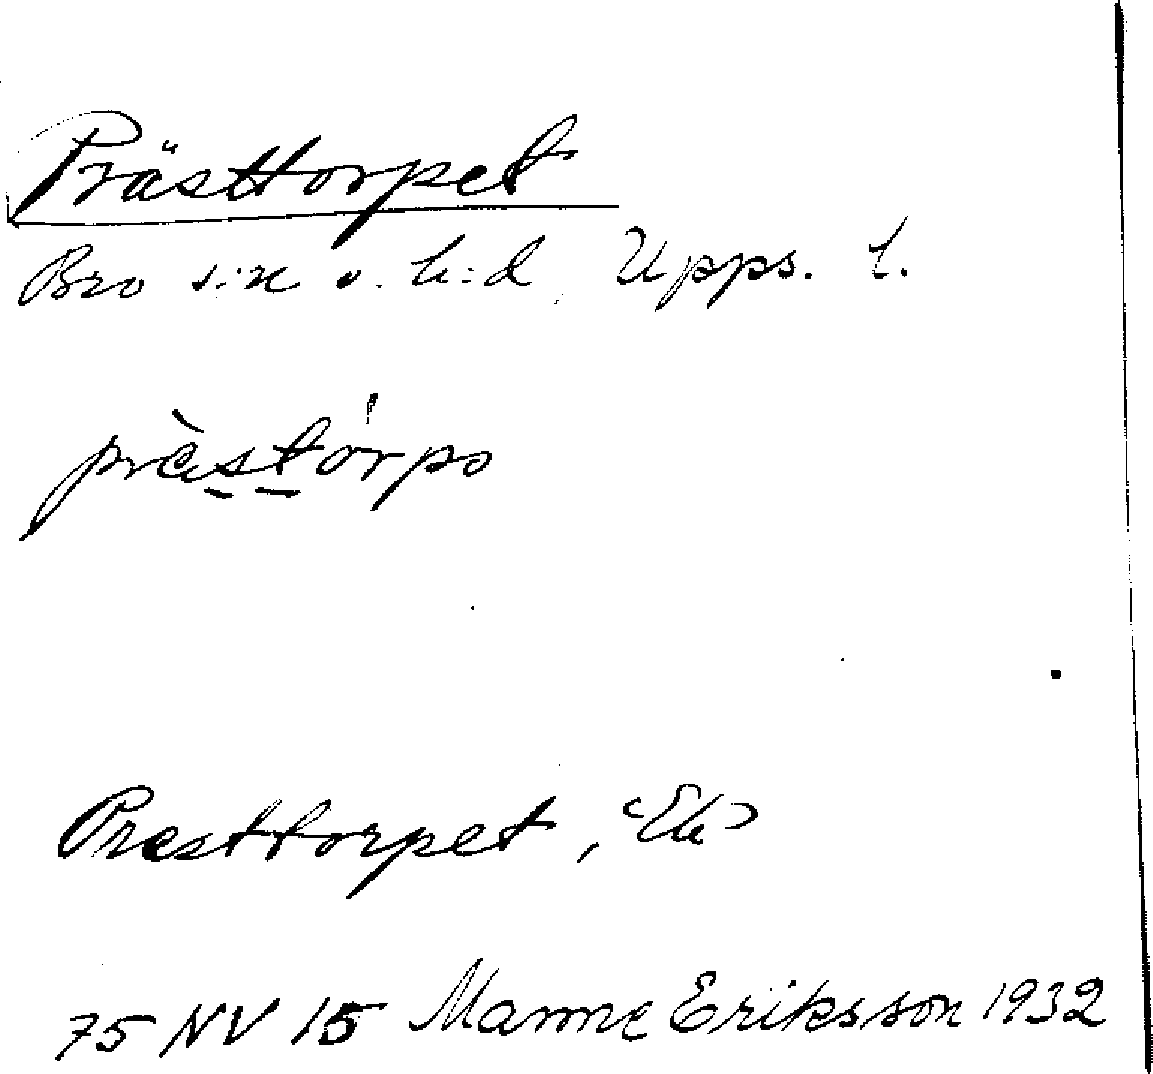 Prästtorpet
Bro s:n o. h:d, Upps. l.
prästórpo
Presttorpet, "Ek"
75 NV 15 Manne Eriksson 1932